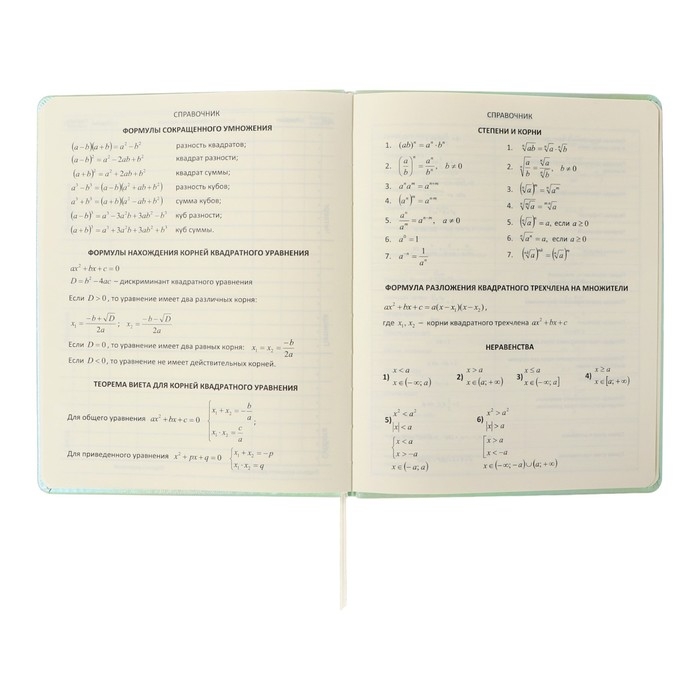 СПРАВОЧНИК
ФОРМУЛЫ СОКРАЩЕННОГО УМНОЖЕНИЯ
(a−b)(a+b)=a²−b² разность квадратов;
(a−b)²=a²−2ab+b² квадрат разности;
(a+b)²=a²+2ab+b² квадрат суммы;
a³−b³=(a−b)(a²+ab+b²) разность кубов;
a³+b³=(a+b)(a²−ab+b²) сумма кубов;
(a−b)³=a³−3a²b+3ab²−b³ куб разности;
(a+b)³=a³+3a²b+3ab²+b³ куб суммы.
ФОРМУЛЫ НАХОЖДЕНИЯ КОРНЕЙ КВАДРАТНОГО УРАВНЕНИЯ
ax²+bx+c=0
D=b²−4ac − дискриминант квадратного уравнения
Если D>0, то уравнение имеет два различных корня:
x₁=(−b+√D)/2a; x₂=(−b−√D)/2a
Если D=0, то уравнение имеет два равных корня: x₁=x₂=−b/2a
Если D<0, то уравнение не имеет действительных корней.
ТЕОРЕМА ВИЕТА ДЛЯ КОРНЕЙ КВАДРАТНОГО УРАВНЕНИЯ
Для общего уравнения ax²+bx+c=0 { x₁+x₂=−b/a;
x₁·x₂=c/a
Для приведенного уравнения x²+px+q=0 { x₁+x₂=−p
x₁·x₂=q
СПРАВОЧНИК
СТЕПЕНИ И КОРНИ
1. (ab)ⁿ=aⁿ·bⁿ
2. (a/b)ⁿ=aⁿ/bⁿ, b≠0
3. aⁿaᵐ=aⁿ⁺ᵐ
4. (aⁿ)ᵐ=aⁿᵐ
5. aⁿ/aᵐ=aⁿ⁻ᵐ, a≠0
6. a⁰=1
7. a⁻ⁿ=1/aⁿ
1. ⁿ√ab=ⁿ√a·ⁿ√b
2. ⁿ√(a/b)=ⁿ√a/ⁿ√b, b≠0
3. (ⁿ√a)ᵐ=ⁿ√aᵐ
4. ᵐ√ⁿ√a=ᵐⁿ√a
5. (ⁿ√a)ⁿ=a, если a≥0
6. ⁿ√aⁿ=a, если a≥0
7.
ФОРМУЛА РАЗЛОЖЕНИЯ КВАДРАТНОГО ТРЕХЧЛЕНА НА МНОЖИТЕЛИ
ax²+bx+c=a(x−x₁)(x−x₂),
где x₁, x₂ − корни квадратного трехчлена ax²+bx+c
НЕРАВЕНСТВА
1) x<a
x∈(−∞;a)
2) x>a
x∈(a;+∞)
3) x≤a
x∈(−∞;a]
4) x≥a
x∈[a;+∞)
5) x²<a²
|x|<a
{ x<a
x>−a
x∈(−a;a)
6) x²>a²
|x|>a
[ x>a
x<−a
x∈(−∞;−a)∪(a;+∞)